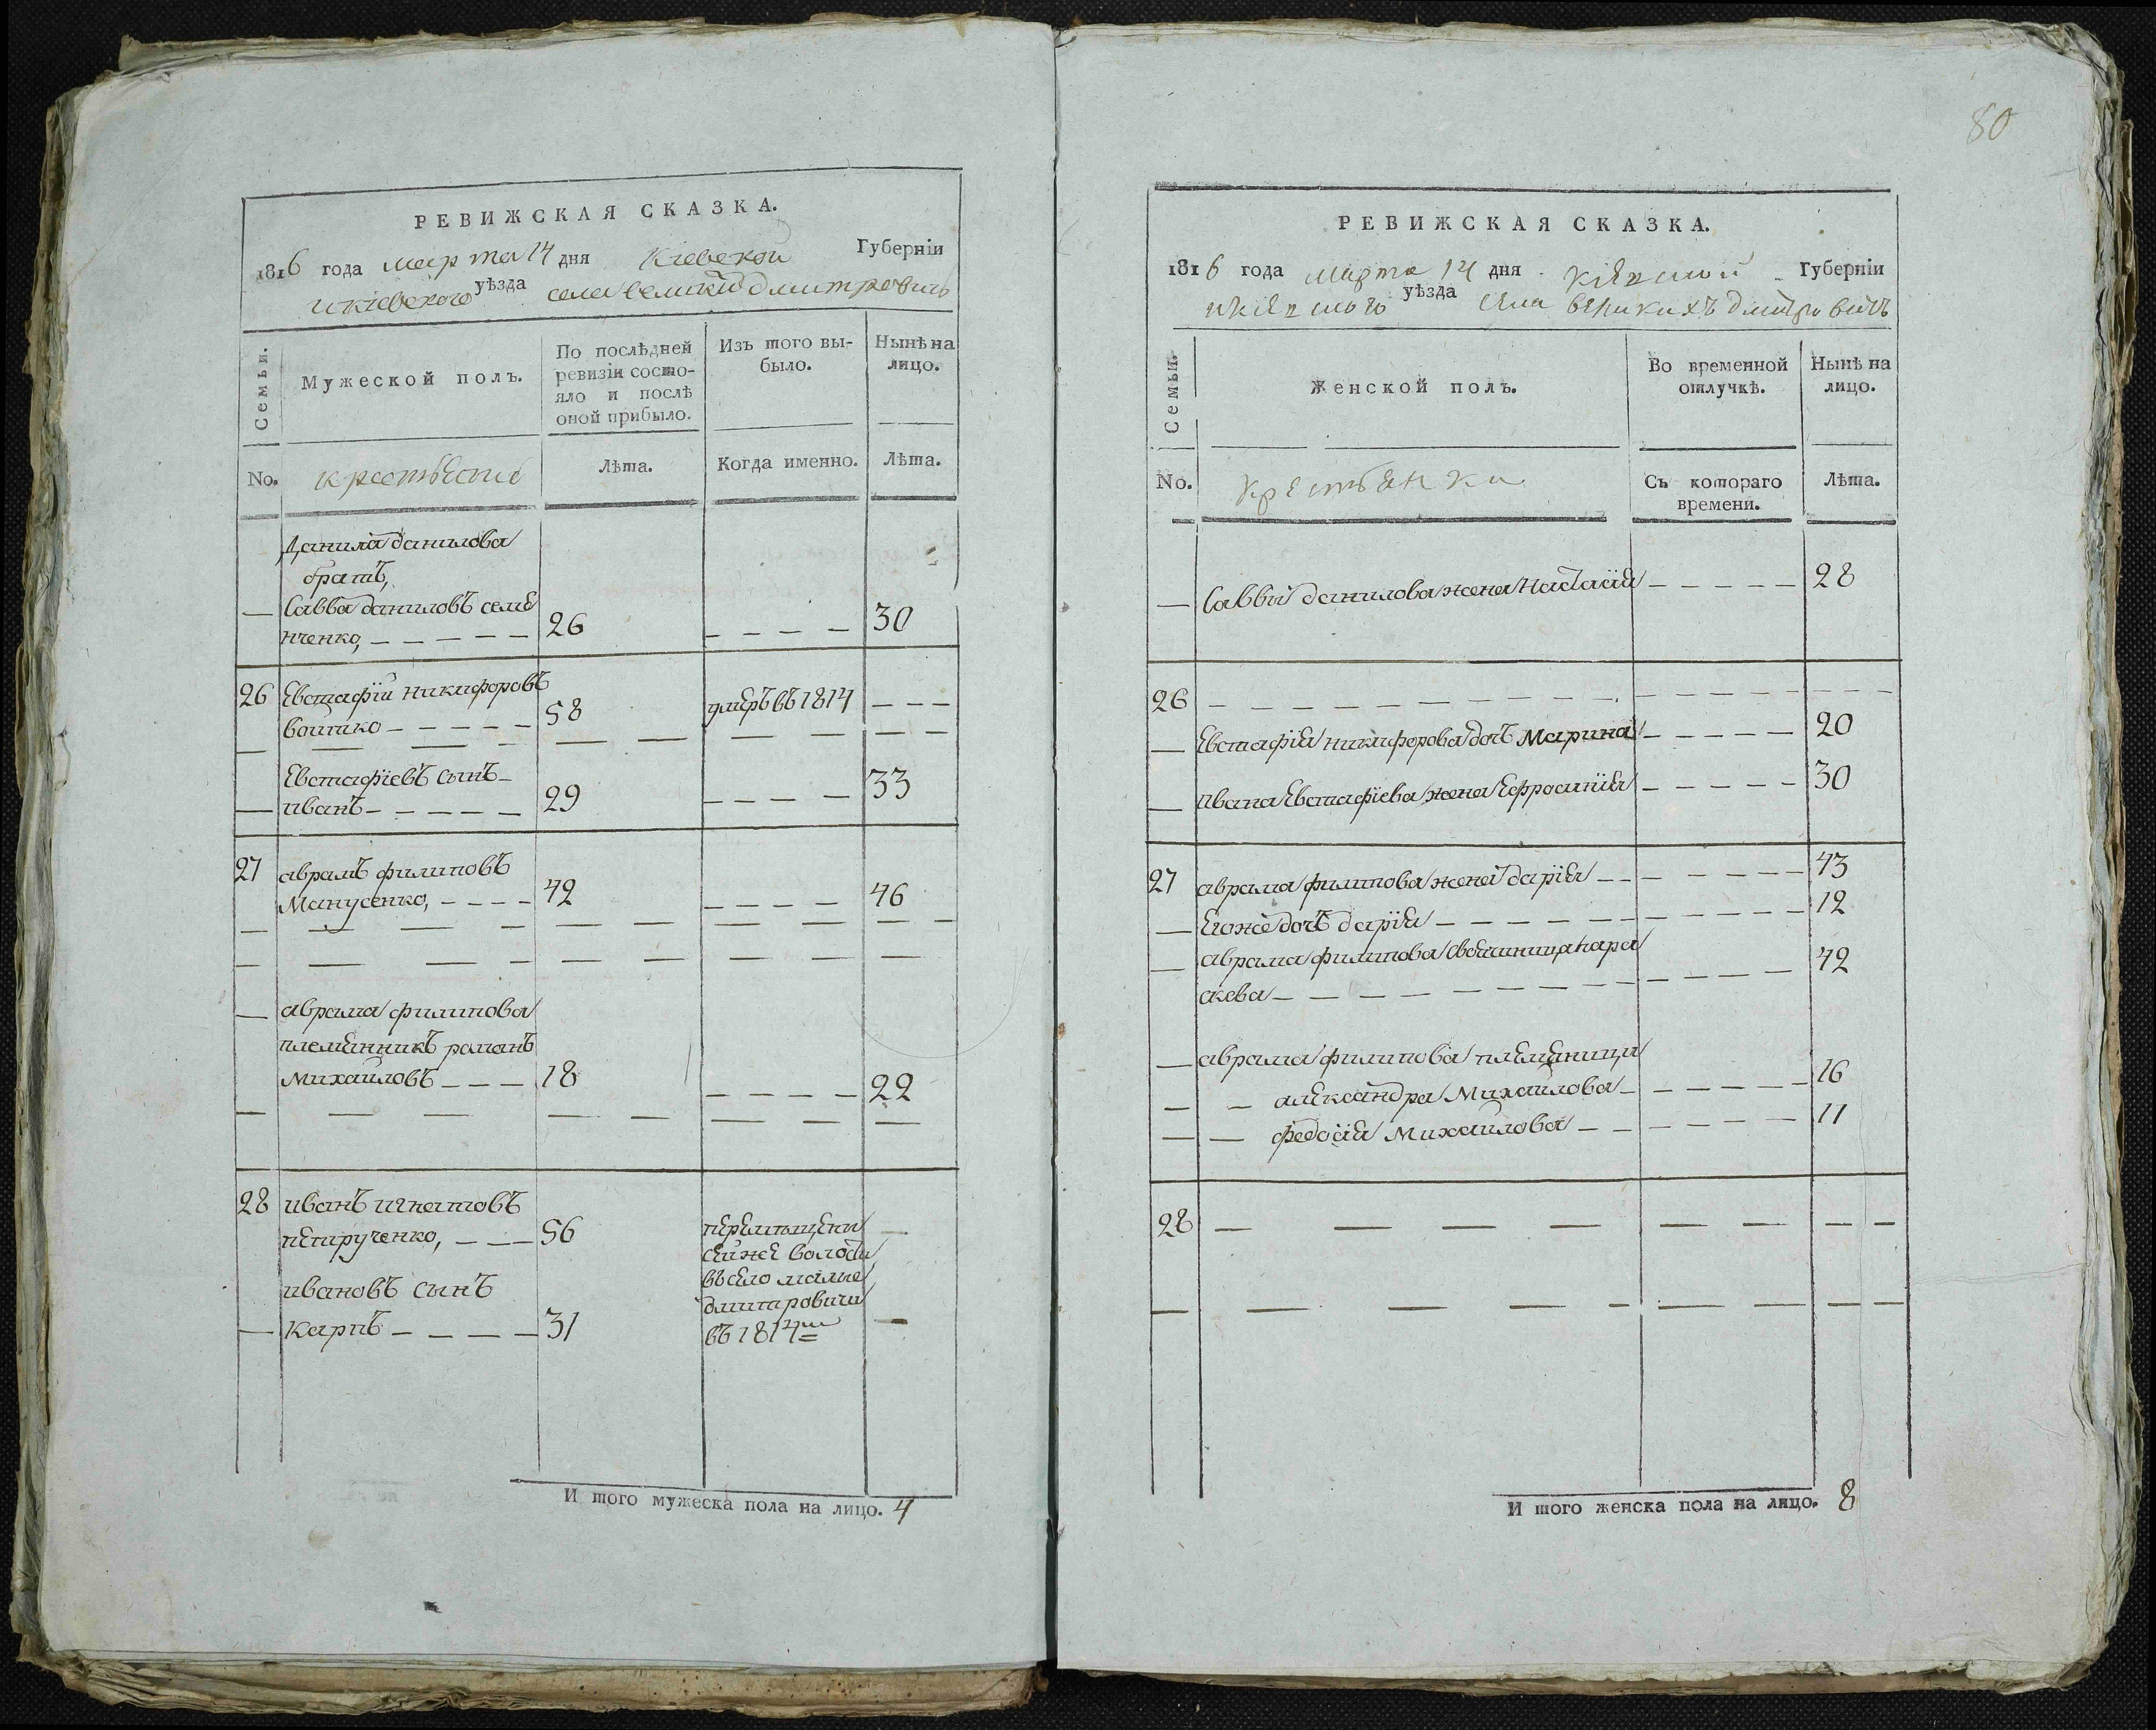 РЕВИЖСКАЯ СКАЗКА.
1816 года марта 14 дня Кіевской Губерніи
икіевского уѣзда села великихъ дмитровичь
Семьи.
Мужеской полъ.
По послѣдней ревизіи состояло и послѣ оной прибыло.
Изъ того выбыло.
Нынѣ на лицо.
No.
крестьяне
Лѣта.
Когда именно.
Лѣта.
Данила данилова
братъ,
— Савва даниловъ семе
нченко, — — — — — 26 — — — — 30
26 Евстафiй никифоровъ
воитко — — — — — 58 умеръ въ 1814 — — —
Евстафiевъ сынъ —
— иванъ — — — — — 29 — — — — 33
27 аврамъ филиповъ
Манусенко, — — — — 42 — — — — 46
— аврама филипова
племенникъ романъ
Михаиловъ — — — 18 — — — — 22
28 иванъ игнатовъ
петрученко, — — — 56 перемещены —
сейже волости
ивановъ сынъ въ село малые
дмитровичи
— карпъ — — — — — 31 въ 1814м —
И того мужеска пола на лицо. 4
80
РЕВИЖСКАЯ СКАЗКА.
1816 года марта 14 дня Кіевской Губерніи
икіевского уѣзда села великихъ дмитровичъ
Семьи.
Женской полъ.
Во временной отлучкѣ.
Нынѣ на лицо.
No.
крестьянки
Съ котораго времени.
Лѣта.
— Саввы данилова жена Настасiя — — — — — 28
26 — — — — — — — — — —
— Евстафiя никифорова дочь Марина — — — — — 20
— ивана Евстафiева жена Ефросинiя — — — — — 30
27 аврама филипова жена дарiя — — — — — — 43
— Егоже дочь дарiя — — — — — — — — — 12
— аврама филипова своячиница пара
скева — — — — — — — — — — 42
— аврама филипова племеница
— — александра Михаилова — — — — — 16
— — федосiя Михаилова — — — — — — 11
28 — — — — — — — —
И того женска пола на лицо. 8